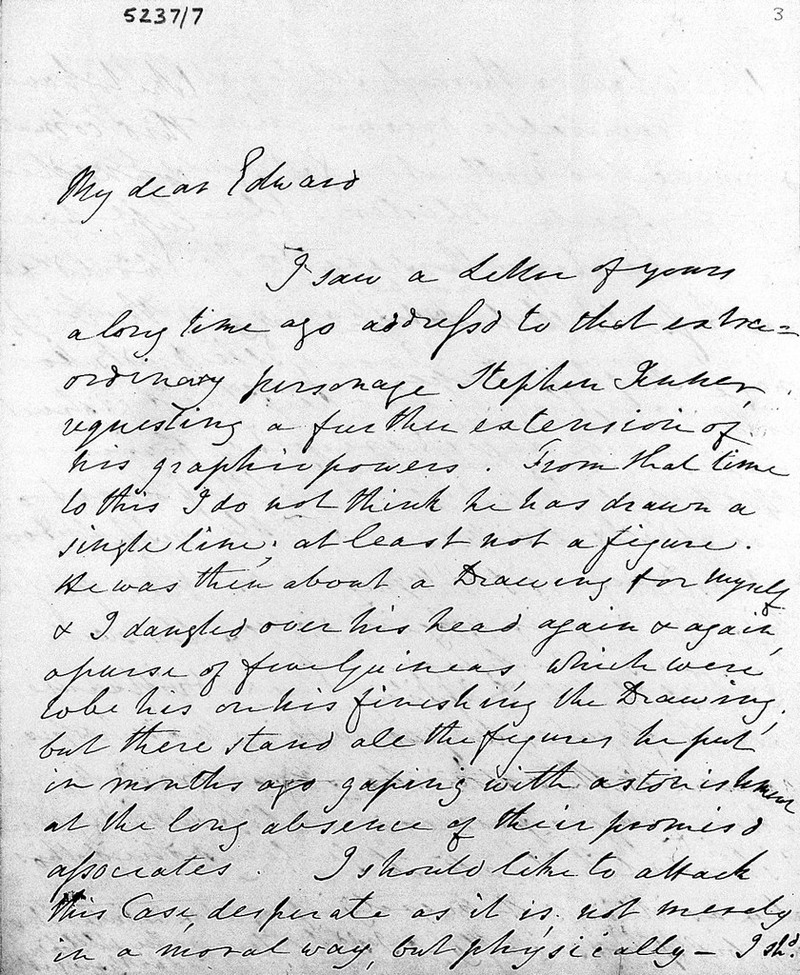 5237/7
3
My dear Edward
I saw a Letter of yours
a long time ago addressd to that extra=
ordinary personage Stephen
requesting a further extension of
his graphic powers. From that time
to this I do not think he has drawn a
single line; at least not a figure.
He was then about a Drawing for myself
& I dangled over his head again & again,
a purse of five Guineas, which were
to be his on his finishing the Drawing,
but there stand all the figures he put
in months ago gaping with astonishment
at the long absence of their promisd
associates. I should like to attack
this Case, desperate as it is, not merely
in a moral way, but physically – I shd.